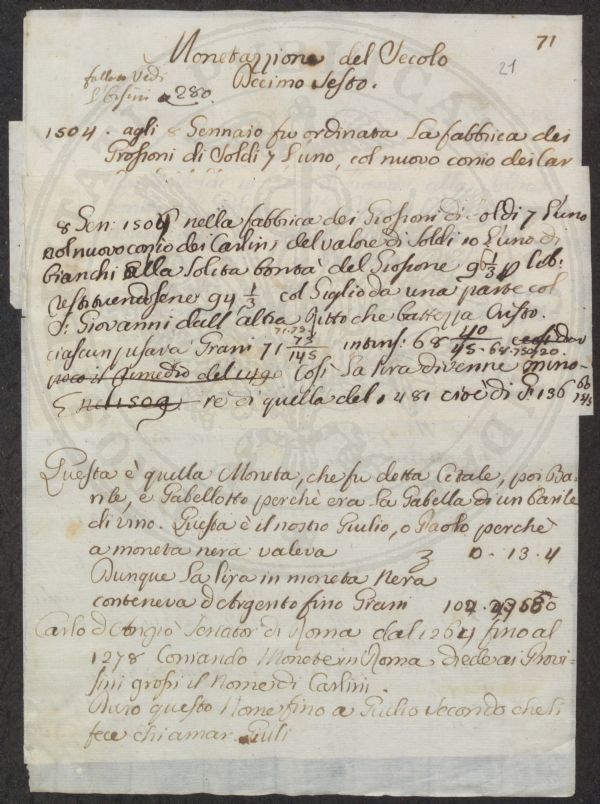 71
21
Monetazzione del Secolo
Decimo Sesto.
Vedi
a 280.
1504. agli 8 Gennaio fu ordinata La fabbrica dei
Grossoni di Soldi 7 L'uno, col nuovo conio dei Car
8 Gen: 1504 nella fabbrica dei Grossoni di Soldi 7 L'uno
col nuovo conio dei Carlini del valore di Soldi 10 L'uno di
bianchi alla Solita bontà del Grossone 9 1/3 p Lib:
restituendosene 94 1/3 col Giglio da una parte col
S. Giovanni dall'altra ritto che battezza Cristo.
ciascun pesava Grani 71 73/145 intrins: 68 40/45
poco il rimedio del 1490 Così La lira divenne mino-
nel 1509 re di quella del 1481 cioè di 136
Questa è quella Moneta, che fu detta Cotale, poi Ba-
rile, e Gabellotto perchè era la Gabella di un barile
di vino. Questa è il nostro Giulio, o Paolo perchè
a moneta nera valeva 0.13.4
Dunque La lira in moneta Nera
conteneva d'Argento fino Grani 102.
Carlo d'Angiò Senator di Roma dal 1264 fino al
1278 Coniando Monete in Roma diede ai Provi-
sini grossi il Nome di Carlini.
Durò questo Nome fino a Giulio Secondo che li
fece chiamar Giuli